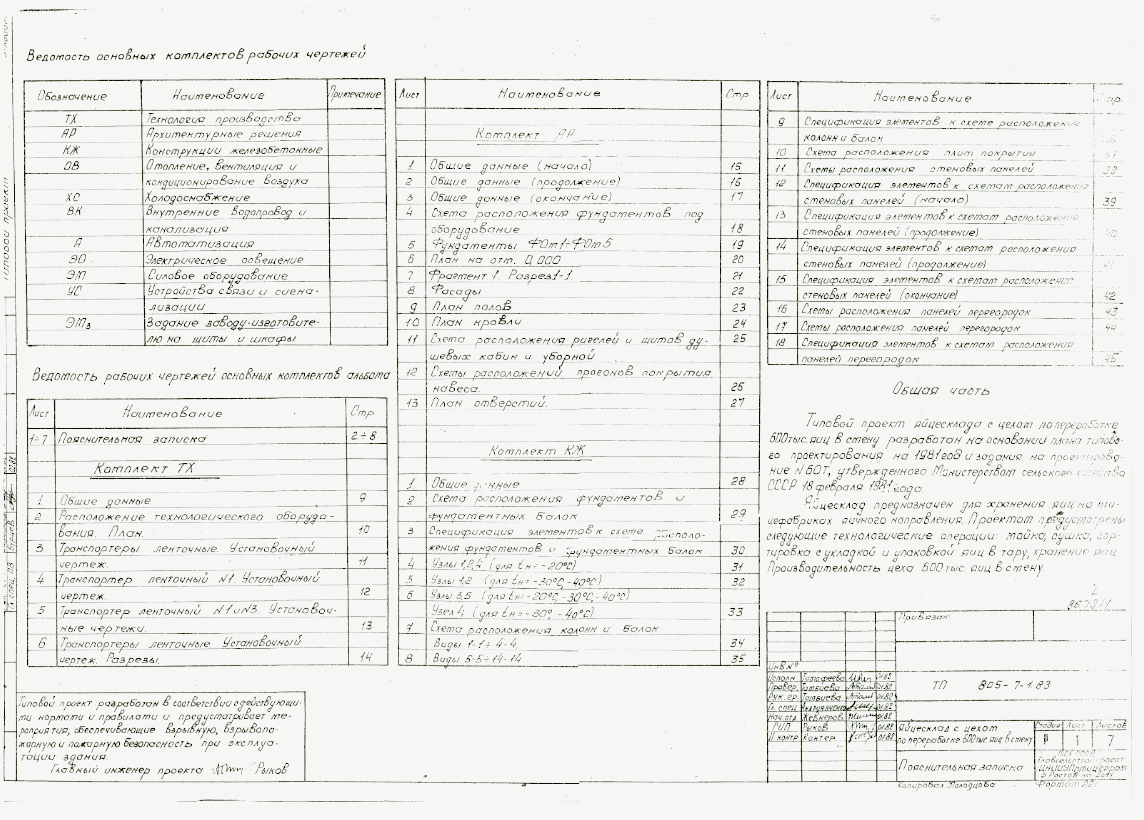 Ведомость основных комплектов рабочих чертежей
Обозначение Наименование Примечание
ТХ Технология производства
АР Архитектурные решения
КЖ Конструкции железобетонные
ОВ Отопление, вентиляция и
кондиционирование воздуха
ХС Холодоснабжение
ВК Внутренние водопровод и
канализация
А Автоматизация
ЭО Электрическое освещение
ЭМ Силовое оборудование
УС Устройства связи и сигна-
лизации
ЭМз Задание заводу-изготовите-
лю на щиты и шкафы
Ведомость рабочих чертежей основных комплектов альбома
Лист Наименование Стр
1÷7 Пояснительная записка 2÷8
Комплект ТХ
1 Общие данные 9
2 Расположение технологического оборудо-
вания. План. 10
3 Транспортеры ленточные. Установочный
чертеж. 11
4 Транспортер ленточный N1. Установочный
чертеж. 12
5 Транспортер ленточный N1иN3. Установоч-
ные чертежи. 13
6 Транспортеры ленточные Установочный
чертеж. Разрезы. 14
Типовой проект разработан в соответствии с действующи-
ми нормами и правилами и предусматривает ме-
роприятия, обеспечивающие взрывную, взрывопо-
жарную и пожарную безопасность при эксплуа-
тации здания.
Главный инженер проекта Рыков
Лист Наименование Стр
Комплект АР
1 Общие данные (начало) 15
2 Общие данные (продолжение) 16
3 Общие данные (окончание) 17
4 Схема расположения фундаментов под
оборудование 18
5 Фундаменты ФОм1÷ФОм5 19
6 План на отм. 0,000 20
7 Фрагмент 1. Разрез1-1. 21
8 Фасады 22
9 План полов 23
10 План кровли 24
11 Схема расположения ригелей и щитов ду- 25
шевых кабин и уборной
12 Схемы расположений прогонов покрытия
навеса. 26
13 План отверстий. 27
Комплект КЖ
1 Общие данные 28
2 Схема расположения фундаментов и
фундаментных балок 29
3 Спецификация элементов к схеме располо-
жения фундаментов и фундаментных балок 30
4 Узлы 1,2,4 (для tн=-20°С) 31
5 Узлы 1,2 (для tн=-30°С,-40°С) 32
6 Узлы 3,5 (для tн=-20°С,-30°С,-40°С)
Узел 4 (для tн=-30°,-40°С) 33
7 Схема расположения колонн и балок
Виды 1-1÷4-4. 34
8 Виды 5-5÷14-14 35
Лист Наименование Стр.
9 Спецификация элементов к схеме расположения
колонн и балок
10 Схема расположения плит покрытия
11 Схемы расположения стеновых панелей
12 Спецификация элементов к схемам расположения
стеновых панелей (начало) 39
13 Спецификация элементов к схемам расположения
стеновых панелей (продолжение) 40
14 Спецификация элементов к схемам расположения
стеновых панелей (продолжение)
15 Спецификация элементов к схемам расположения
стеновых панелей (окончание) 42
16 Схемы расположения панелей перегородок 43
17 Схемы расположения панелей перегородок 44
18 Спецификация элементов к схемам расположения
панелей перегородок 45
Общая часть
Типовой проект яйцесклада с цехом по переработке
600тыс. яиц в смену разработан на основании плана типово-
го проектирования на 1981год и задания на проектирова-
ние N60Т, утвержденного Министерством сельского хозяйства
СССР 18 февраля 1981года.
Яйцесклад предназначен для хранения яиц на пти-
цефабриках яичного направления. Проектом предусмотрены
следующие технологические операции: мойка, сушка, сор-
тировка с укладкой и упаковкой яиц в тару, хранение яиц.
Производительность цеха 600 тыс. яиц в смену
Привязан:
Инв N°
ТП 805-7-1.83
Исполн. Тимофеева 01.82
Провер. Тамбиева 01.82
Рук. гр. Тамбиева 01.82
Гл. спец. 01.82
Нач. отд. Жевнеров 01.82
ГИП Рыков 01.82
Н. контр. Кантер 01.82
Яйцесклад с цехом
по переработке 600 тыс. яиц в смену
Стадия Лист Листов
Р 1 7
Пояснительная записка
г. Ростов-на-Дону
Копировал Молодцова Формат 22Г